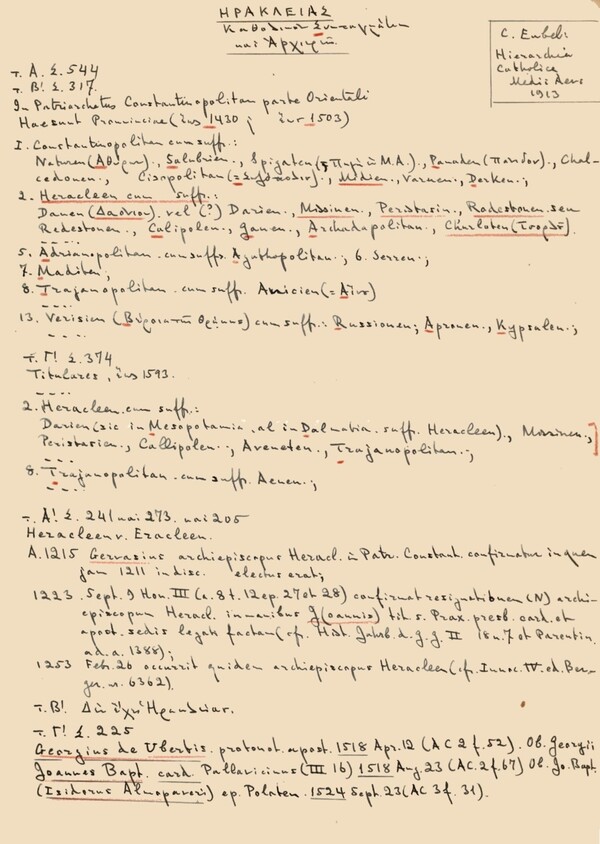 ΗΡΑΚΛΕΙΑΣ
Καθολικοὶ
καὶ Ἀρχιεπ.
C. Eubel:
Hierarchia
Catholica
Medii Aevi
1913
τ. Α. Σ. 544
τ. Β! Σ. 317.
In Patriarchatus Constantinopolitan parte Orientali
Haesunt Provinciae (ἕως 1430 ; ἕως 1503)
I. Constantinopolitan cum suff.:
Naturen (Αθύρων)., Salubrien., Spigaten (= Πηγαὶ Μ.Α.)., Panaden (πανίδου)., Chal-
cedonen., Cisopolitan (= Σωζόπολιν)., Midien., Varnen., Derken.;
2. Heracleen cum suff.:
Danen (Δαόνιον). vel (?) Darien., Missinen., Peristasin., Rodestonen. seu
Redestonen., Calipolen., ganen., Archadapolitan., Churloten (Τσορλοῦ).
5. Adrianopolitan. cum suff. Agathopolitan.; 6. Serren.;
7. Maditen;
8. Trajanopolitan. cum suff. Aenicien (= Αἶνο)
13. Verisien (Βύρσια Θράκης) cum suff.: Russionen; Apronen., Kypsalen.;
τ. Γ! Σ. 374
Titulares, ἕως 1593.
2. Heracleen. cum suff.:
Darien (sic in Mesopotamia. al in Dalmatia. suff. Heracleen)., Missinen.,
Peristasien., Callipolen.., Aveneten., Trajanopolitan..;
8. Trajanopolitan. cum suff. Aenen.;
τ. Α! Σ. 241 και 273. και 205
Heracleen v. Eracleen.
A. 1215 Gervasius archiepiscopus Heracl. in Patr. Constant. confirmatur in quem
jam 1211 in disc. electus erat;
1223 Sept. 9 Hon. III (a. 8 t. 12 ep. 27 et 28) confirmat resignationem (N) archi-
episcopum Heracl. in manibus J(oannis) tit. s. Prax. presb. card. et
apost. sedis legati factam (cf. Hist. Jahrb. d. g. g. II 18 n. 7. et Parentin.
ad. a. 1388);
1253 Febr. 26 occurrit quidem archiepiscopus Heracleen (cf. Innoc. IV. ed. Ber-
ger. n. 6362).
τ. Β! Δὲν ἔχει Ἡρακλείας.
τ. Γ! Σ. 225
Georgius de Ubertis. protonot. apost. 1518 Apr. 12 (AC 2 f. 52). Ob. Georgii
Joannes Bapt. card. Pallavicinus (III 16) 1518 Aug. 23 (AC. 2 f. 67) Ob. Jo. Bapt.
(Isidorus Almapaveri) ep. Polaten. 1524 Sept. 23 (AC 3 f. 31).